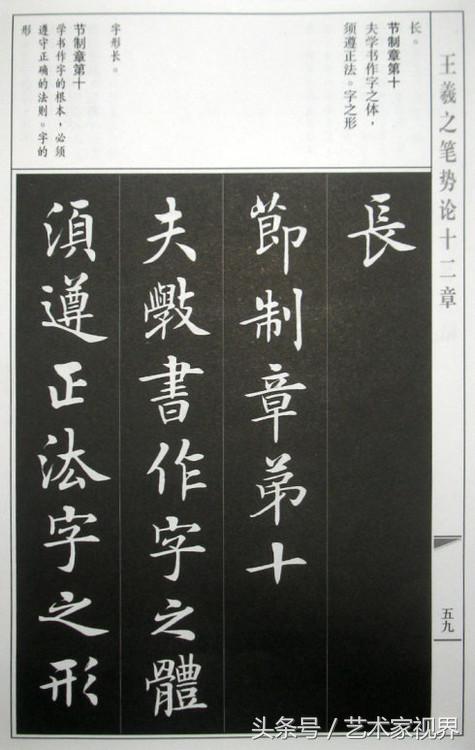 王羲之笔势论十二章
长。
节制章第十
夫学书作字之体，
须遵正法。字之形
字形长。
节制章第十
学书作字的根本，必须
遵守正确的法则。字的
形
長
節制章第十
夫斆書作字之體
須遵正法字之形
五九
头条号／艺术家视界